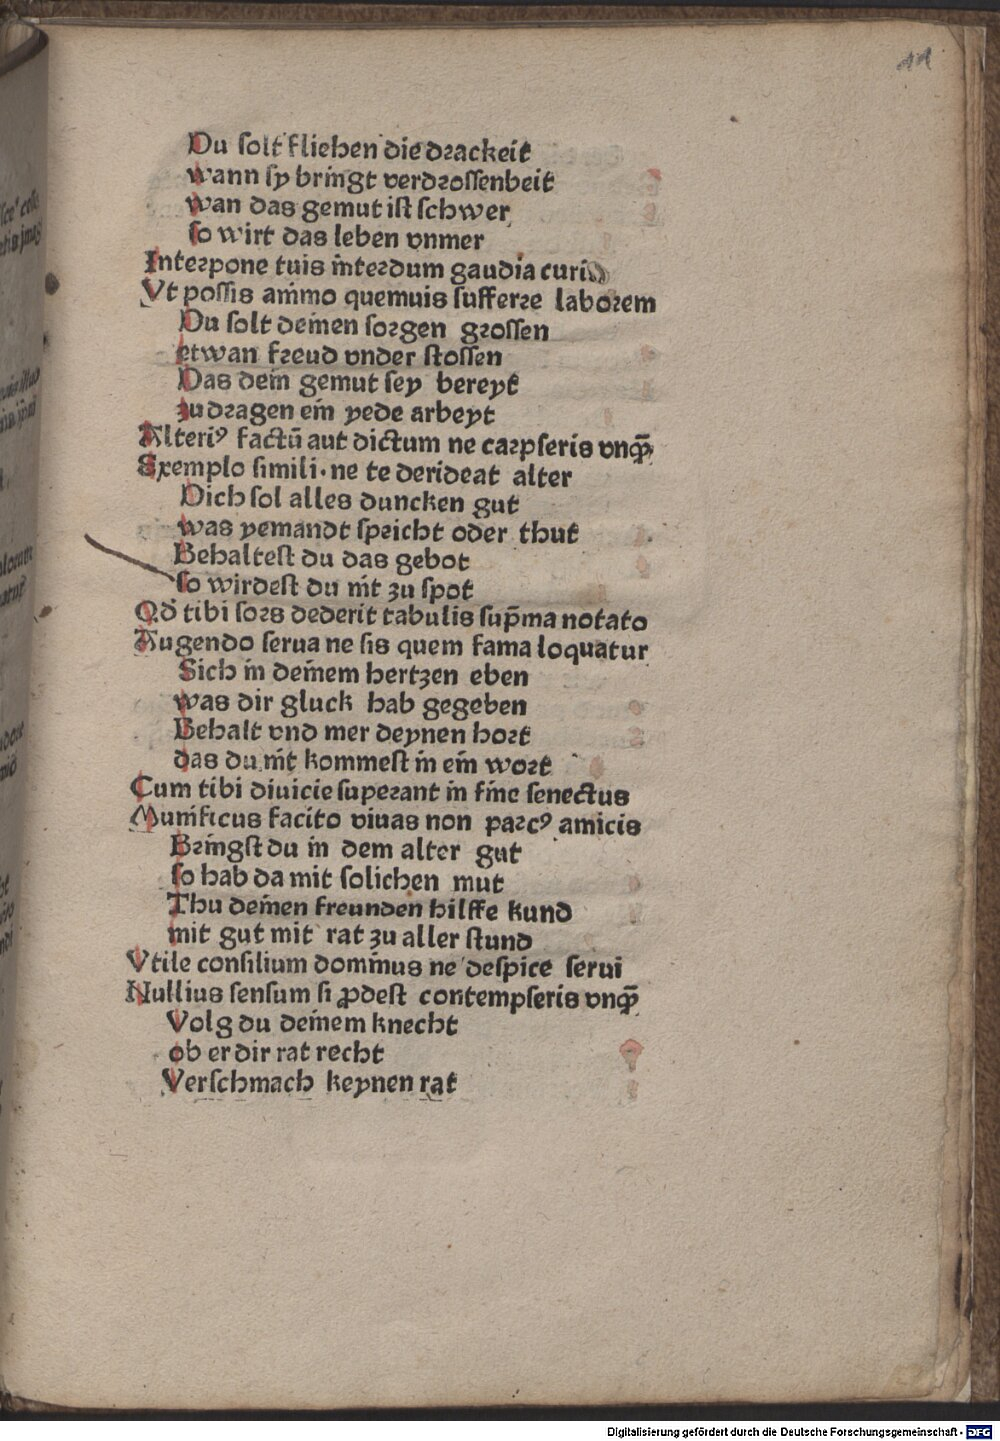 11
Du solt fliehen die drackeit
wann sy bringt verdrossenheit
wan das gemut ist schwer
so wirt das leben vnmer
Interpone tuis interdum gaudia curis
Vt possis animo quemuis sufferre laborem
Du solt deinen sorgen grossen
etwan freud vnder stossen
Das dein gemut sey bereyt
zu dragen ein yede arbeyt
Alteriꝰ factū aut dictum ne carpseris vnqꝫ̄
Exemplo simili·ne te derideat alter
Dich sol alles duncken gut
was yemandt spricht oder thut
Behaltest du das gebot
so wirdest du nit zu spot
Qd̄ tibi sors dederit tabulis sup̄ma notato
Augendo serua ne sis quem fama loquatur
Sich in deinem hertzen eben
was dir gluck hab gegeben
Behalt vnd mer deynen hort
das du nit kommest in ein wort
Cum tibi diuicie superant in fine senectus
Munificus facito viuas non parcꝰ amicis
Bringst du in dem alter gut
so hab da mit solichen mut
Thu deinen freunden hilffe kund
mit gut mit rat zu aller stund
Vtile consilium dominus ne despice serui
Nullius sensum si ꝓdest contempseris vnqꝫ̄
Volg du deinem knecht
ob er dir rat recht
Verschmach keynen rat
Digitalisierung gefördert durch die Deutsche Forschungsgemeinschaft - DFG